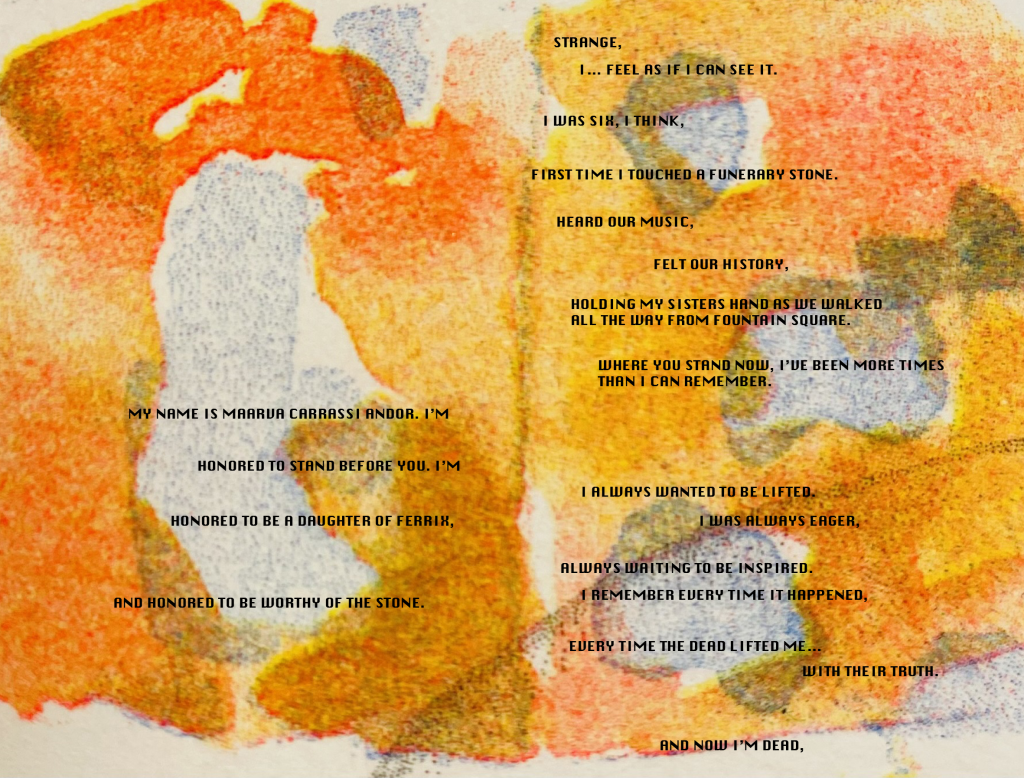 MY NAME IS MAARVA CARRASSI ANDOR. I'M
HONORED TO STAND BEFORE YOU. I'M
HONORED TO BE A DAUGHTER OF FERRIX,
AND HONORED TO BE WORTHY OF THE STONE.
STRANGE,
I... FEEL AS IF I CAN SEE IT.
I WAS SIX, I THINK,
FIRST TIME I TOUCHED A FUNERARY STONE.
HEARD OUR MUSIC,
FELT OUR HISTORY,
HOLDING MY SISTERS HAND AS WE WALKED
ALL THE WAY FROM FOUNTAIN SQUARE.
WHERE YOU STAND NOW, I'VE BEEN MORE TIMES
THAN I CAN REMEMBER.
I ALWAYS WANTED TO BE LIFTED.
I WAS ALWAYS EAGER,
ALWAYS WAITING TO BE INSPIRED.
I REMEMBER EVERY TIME IT HAPPENED,
EVERY TIME THE DEAD LIFTED ME...
WITH THEIR TRUTH.
AND NOW I'M DEAD,